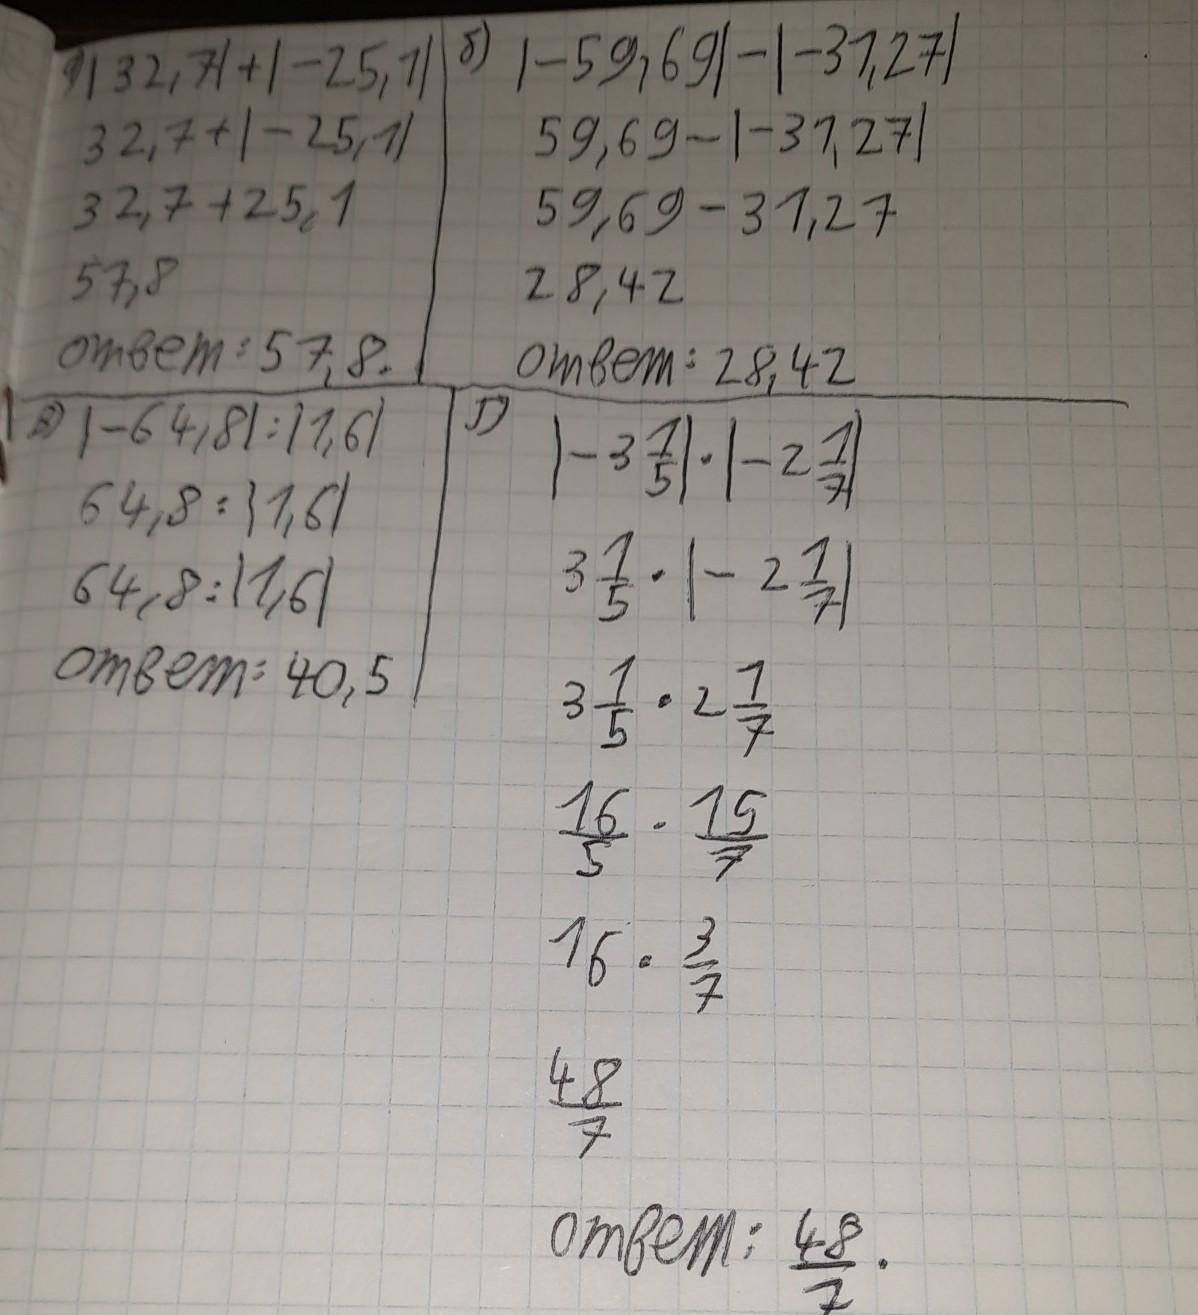 а) |32,7| + |-25,1|
32,7 + |-25,1|
32,7 + 25,1
57,8
ответ: 57,8.
б) |-59,69| - |-31,27|
59,69 - |-31,27|
59,69 - 31,27
28,42
ответ: 28,42
в) |-64,8| : |1,6|
64,8 : |1,6|
64,8 : |1,6|
ответ: 40,5
г) |-3 1/5| · |-2 1/7|
3 1/5 · |-2 1/7|
3 1/5 · 2 1/7
16/5 · 15/7
16 · 3/7
48/7
ответ: 48/7.